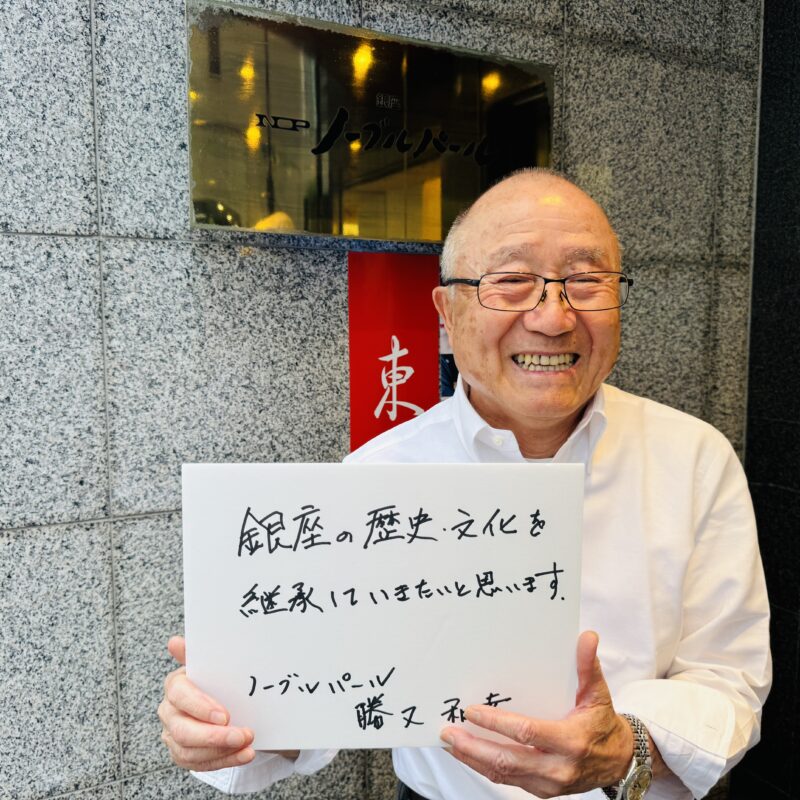 銀座
NP ノーブルパール
東
銀座の歴史・文化を
継承していきたいと思います.
ノーブルパール
勝又